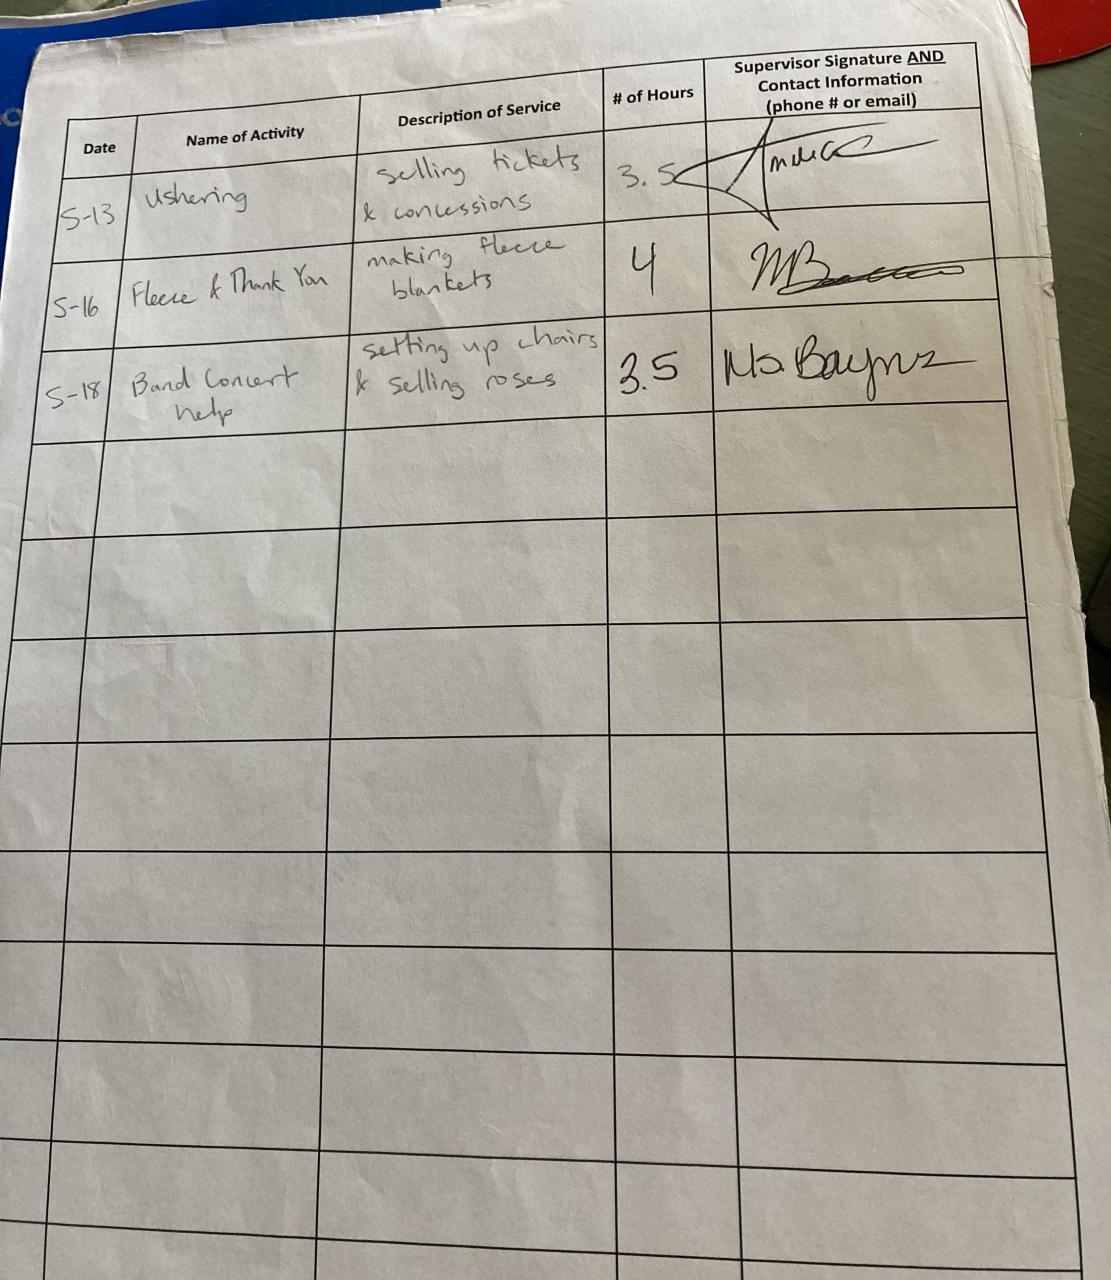 Date
Name of Activity
Description of Service
# of Hours
Supervisor Signature AND
Contact Information
(phone # or email)
5-13
Ushering
selling tickets
& concessions
3.5
5-16
Fleece & Thank You
making fleece
blankets
4
5-18
Band Concert
help
setting up chairs
& selling roses
3.5